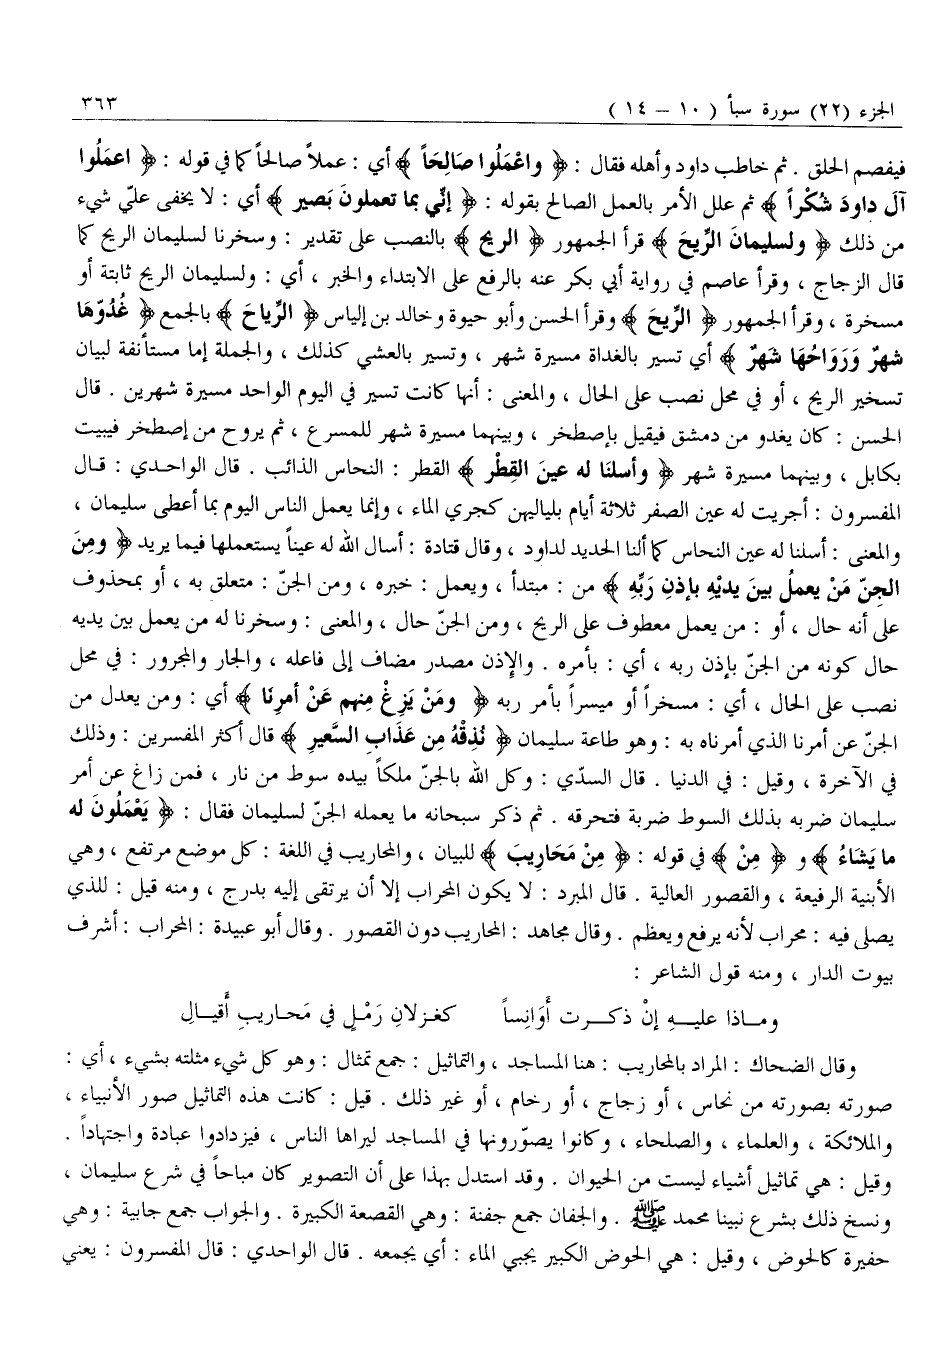 الجزء (٢٢) سورة سبأ ( ١٠ – ١٤ ) ٣٦٣
فيفصم الحلق . ثم خاطب داود وأهله فقال : ﴿ واعْمَلُوا صَالِحَاً ﴾ أي : عملاً صالحاً كما في قوله : ﴿ اعمَلُوا
آلَ داودَ شُكْراً ﴾ ثم علل الأمر بالعمل الصالح بقوله : ﴿ إنّي بما تعملونَ بَصير ﴾ أي : لا يخفى عليّ شيء
من ذلك ﴿ ولسليمانَ الرِّيحَ ﴾ قرأ الجمهور ﴿ الريح ﴾ بالنصب على تقدير : وسخرنا لسليمان الريح كما
قال الزجاج ، وقرأ عاصم في رواية أبي بكر عنه بالرفع على الابتداء والخبر ، أي : ولسليمان الريح ثابتة أو
مسخرة ، وقرأ الجمهور ﴿ الرِّيحَ ﴾ وقرأ الحسن وأبو حيوة وخالد بن إلياس ﴿ الرِّياحَ ﴾ بالجمع ﴿ غُدُوّهَا
شهرٌ وَرَوَاحُهَا شَهرٌ ﴾ أي تسير بالغداة مسيرة شهر ، وتسير بالعشي كذلك ، والجملة إما مستأنفة لبيان
تسخير الريح ، أو في محل نصب على الحال ، والمعنى : أنها كانت تسير في اليوم الواحد مسيرة شهرين . قال
الحسن : كان يغدو من دمشق فيقيل بإصطخر ، وبينهما مسيرة شهر للمسرع ، ثم يروح من إصطخر فيبيت
بكابل ، وبينهما مسيرة شهر ﴿ وأسلنَا له عينَ القِطْر ﴾ القطر : النحاس الذائب . قال الواحدي : قال
المفسرون : أجريت له عين الصفر ثلاثة أيام بلياليهن كجري الماء ، وإنما يعمل الناس اليوم بما أعطى سليمان ،
والمعنى : أسلنا له عين النحاس كما ألنا الحديد لداود ، وقال قتادة : أسال الله له عيناً يستعملها فيما يريد ﴿ ومِنَ
الجِنّ مَنْ يعملُ بينَ يديْهِ بإذنِ رَبِّهِ ﴾ من : مبتدأ ، ويعمل : خبره ، ومن الجنّ : متعلق به ، أو بمحذوف
على أنه حال ، أو : من يعمل معطوف على الريح ، ومن الجنّ حال ، والمعنى : وسخرنا له من يعمل بين يديه
حال كونه من الجنّ بإذن ربه ، أي : بأمره . والإذن مصدر مضاف إلى فاعله ، والجار والمجرور : في محل
نصب على الحال ، أي : مسخراً أو ميسراً بأمر ربه ﴿ ومَنْ يَزِغْ مِنهم عَنْ أمرِنَا ﴾ أي : ومن يعدل من
الجنّ عن أمرنا الذي أمرناه به : وهو طاعة سليمان ﴿ نُذِقْهُ مِن عَذَابِ السَّعيرِ ﴾ قال أكثر المفسرين : وذلك
في الآخرة ، وقيل : في الدنيا . قال السدّي : وكل الله بالجنّ ملكاً بيده سوط من نار ، فمن زاغ عن أمر
سليمان ضربه بذلك السوط ضربة فتحرقه . ثم ذكر سبحانه ما يعمله الجنّ لسليمان فقال : ﴿ يَعْمَلُونَ له
ما يَشَاءُ ﴾ و ﴿ مِنْ ﴾ في قوله : ﴿ مِنْ مَحَاريبَ ﴾ للبيان ، والمحاريب في اللغة : كل موضع مرتفع ، وهي
الأبنية الرفيعة ، والقصور العالية . قال المبرد : لا يكون المحراب إلا أن يرتقى إليه بدرج ، ومنه قيل : للذي
يصلى فيه : محراب لأنه يرفع ويعظم . وقال مجاهد : المحاريب دون القصور . وقال أبو عبيدة : المحراب : أشرف
بيوت الدار ، ومنه قول الشاعر :
ومــاذا عليــهِ إنْ ذكــرت أَوَانِساً كغـزلانِ رَمْـلٍ في مَحـاريبِ أَقيـالِ
وقال الضحاك : المراد بالمحاريب : هنا المساجد ، والتماثيل : جمع تمثال : وهو كل شيء مثلته بشيء ، أي :
صورته بصورته من نحاس ، أو زجاج ، أو رخام ، أو غير ذلك . قيل : كانت هذه التماثيل صور الأنبياء ،
والملائكة ، والعلماء ، والصلحاء ، وكانوا يصوّرونها في المساجد ليراها الناس ، فيزدادوا عبادة واجتهاداً .
وقيل : هي تماثيل أشياء ليست من الحيوان . وقد استدل بهذا على أن التصوير كان مباحاً في شرع سليمان ،
ونسخ ذلك بشرع نبينا محمد ﷺ . والجفان جمع جفنة : وهي القصعة الكبيرة . والجواب جمع جابية : وهي
حفيرة كالحوض ، وقيل : هي الحوض الكبير يجبي الماء : أي يجمعه . قال الواحدي : قال المفسرون : يعني